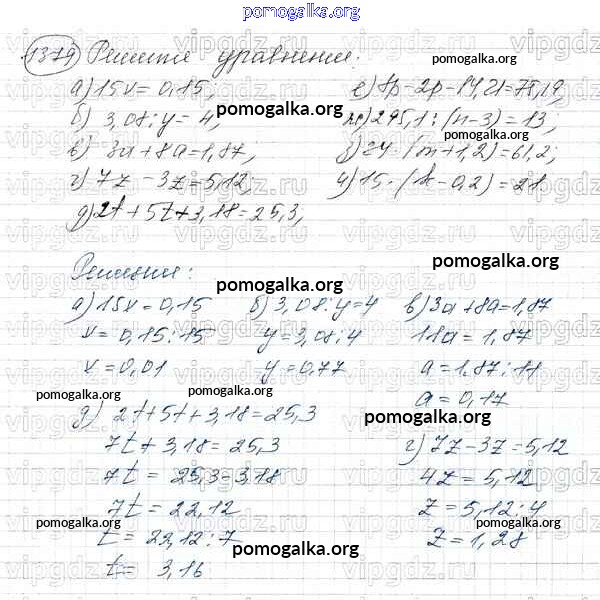 pomogalka.org
1379 Решите уравнение:
а) 15x = 0,15; е) 8p-2p-14,21=75,19;
б) 3,08:y = 4; ж) 295,1:(n-3) = 13;
в) 3a+8a=1,87; з) 24·(m+1,2)=61,2;
г) 7z-3z=5,12; и) 15·(k-0,2)=21.
д) 2t+5t+3,18=25,3,
Решение:
а) 15x=0,15 б) 3,08:y=4 в) 3a+8a=1,87
x=0,15:15 y=3,08:4 11a=1,87
x=0,01 y=0,77 a=1,87:11
a=0,17
д) 2t+5t+3,18=25,3
7t+3,18=25,3 г) 7z-3z=5,12
7t = 25,3-3,18 4z=5,12
7t = 22,12 z=5,12:4
t=22,12:7 z=1,28
t= 3,16
pomogalka.org
vipgdz.ru